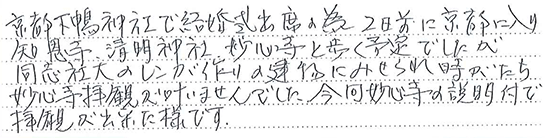 京都下鴨神社で結婚式出席の為2日前に京都に入り
知恩寺、清明神社、妙心寺と歩く予定でしたが
同志社大のレンガ作りの建物にみせられ時がたち
妙心寺拝観が叶いませんでした。今回妙心寺の説明付で
拝観が出来た様です。